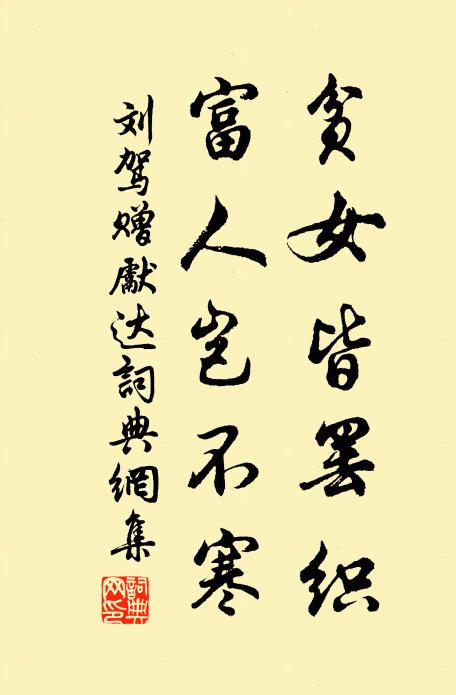 贫女皆罢织
富人岂不寒
刘驾赠献达詞典網集
詞典网印